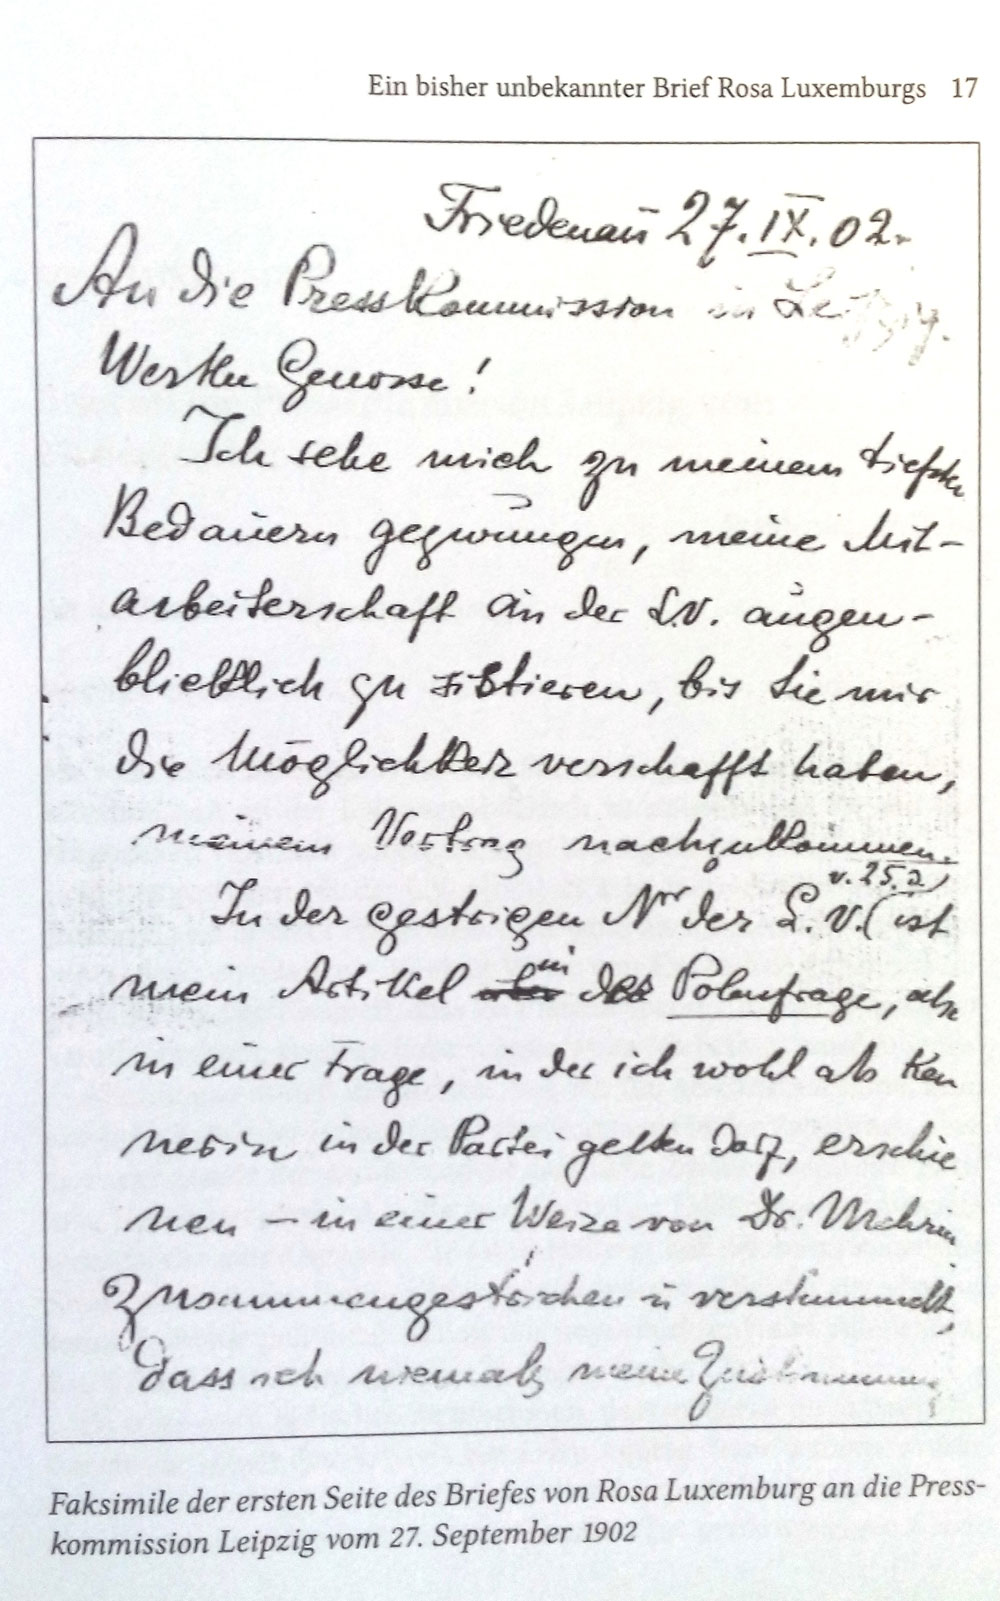 Ein bisher unbekannter Brief Rosa Luxemburgs 17
Friedenau 27. IX. 02.
An die Presskommission in Leipzig.
Werthe Genossen!
Ich sehe mich zu meinem tiefsten
Bedauern gezwungen, meine Mit-
arbeiterschaft an der L.V. augen-
blicklich zu sistieren, bis Sie mir
die Möglichkeit verschafft haben,
meinem Vertrag nachzukommen.
v. 25. d.)
In der gestrigen Nr der L.V. ( ist
in
mein Artikel der Polenfrage, also
in einer Frage, in der ich wohl als Ken
nerin in der Partei gelten darf, erschie
nen – in einer Weise von Dr. Mehring
zusammengestrichen u verstümmelt,
dass ich niemals meine Zustimmung
Faksimile der ersten Seite des Briefes von Rosa Luxemburg an die Press-
kommission Leipzig vom 27. September 1902